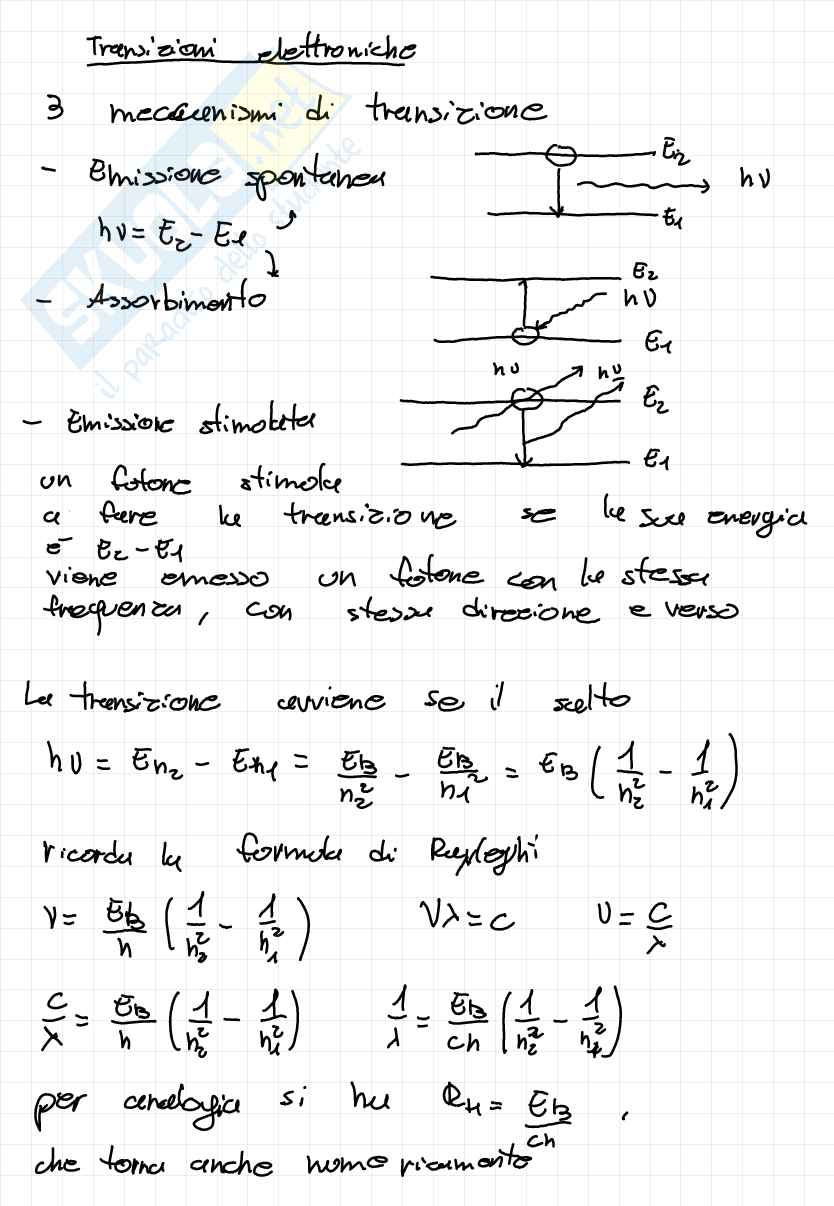 Transizioni elettroniche
3 meccanismi di transizione
- Emissione spontanea
hν = E₂ - E₁
E₂
hν
E₁
- Assorbimento
E₂
hν
E₁
- Emissione stimolata
hν hν
E₂
E₁
un fotone stimola
a fare la transizione se la sua energia
è E₂ - E₁
viene emesso un fotone con la stessa
frequenza, con stessa direzione e verso
La transizione avviene se il salto
hν = En₂ - En₁ = EB/n₂² - EB/n₁² = EB (1/n₂² - 1/n₁²)
ricorda la formula di
ν = EB/h (1/n₂² - 1/n₁²) νλ = c ν = c/λ
c/λ = EB/h (1/n₂² - 1/n₁²) 1/λ = EB/ch (1/n₂² - 1/n₁²)
per analogia si ha RH = EB/ch ,
che torna anche numericamente
SKUOLA.net
il paradiso dello studente